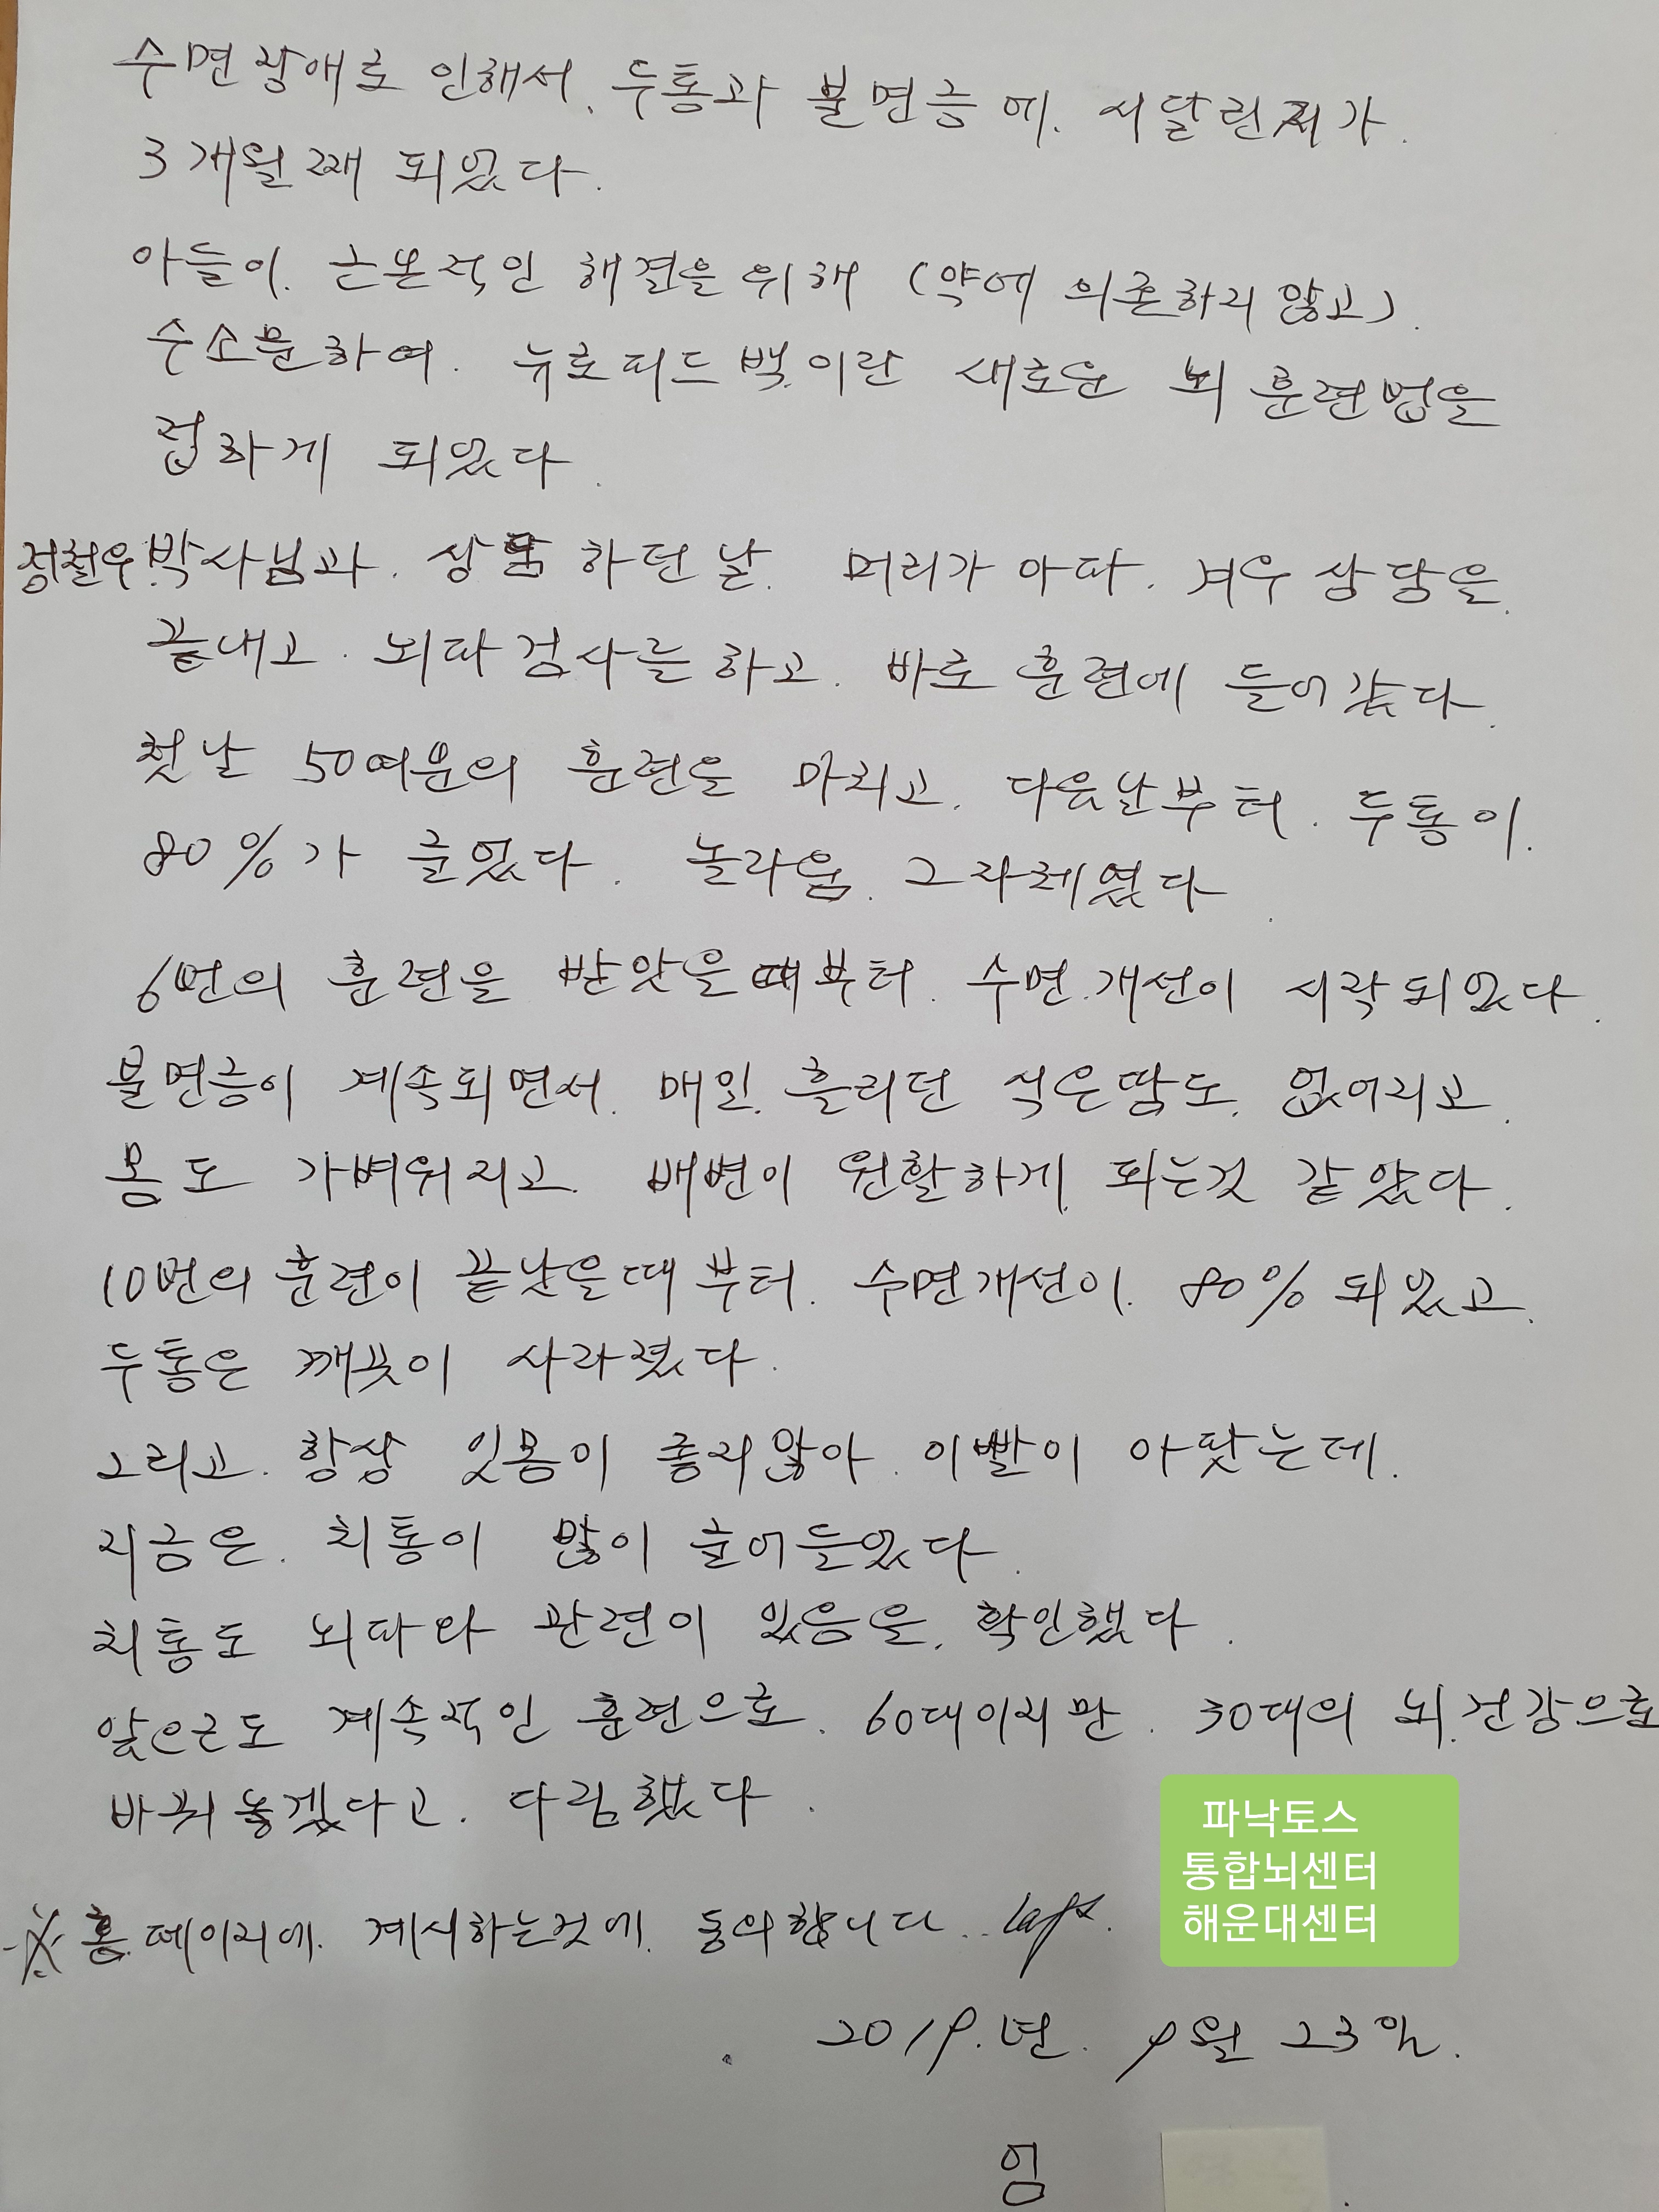 수면장애로 인해서. 두통과 불면증에. 시달린지가.
3개월째 되었다.
아들이. 근본적인 해결을 위해 (약에 의존하지 않고).
수소문하여. 뉴로피드백.이란 새로운 뇌 훈련법을
접하게 되었다.
정철우.박사님과. 상담 하던 날. 머리가 아파. 겨우 상담을.
끝내고. 뇌파검사를 하고. 바로 훈련에 들어갔다.
첫날 50여분의 훈련을 마치고. 다음날부터. 두통이.
80%가 줄었다. 놀라움. 그자체였다.
6번의 훈련을 받았을때부터. 수면.개선이 시작되었다.
불면증이 계속되면서. 매일. 흘리던 식은땀도. 없어지고.
몸도 가벼워지고. 배변이 원활하게. 되는것 같았다.
10번의 훈련이 끝났을때부터. 수면개선이. 80%되었고.
두통은 깨끗이 사라졌다.
그리고. 항상 잇몸이 좋지않아. 이빨이 아팟는데.
지금은. 치통이 많이 줄어들었다.
치통도 뇌파와 관련이 있음을. 확인했다.
앞으로도 계속적인 훈련으로. 60대이지만. 30대의 뇌.건강으로
바꿔놓겠다고. 다짐했다.
※ 홈.페이지에. 게시하는것에. 동의합니다..
파낙토스
통합뇌센터
해운대센터
2019.년. 9월 23일.
엄